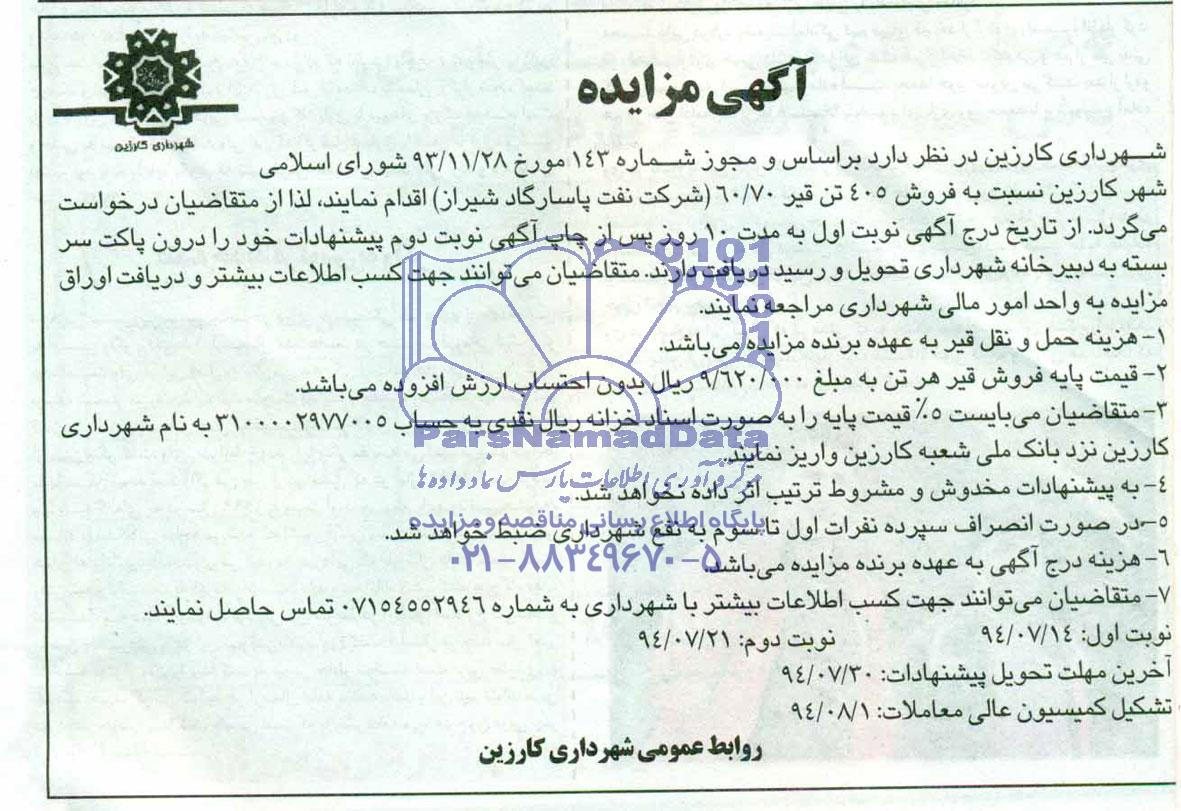 آگهی مزایده
شهرداری کارزین
شـــهرداری کارزین در نظر دارد براساس و مجوز شـــماره ۱۴۳ مورخ ۹۳/۱۱/۲۸ شورای اسلامی
شهر کارزین نسبت به فروش ٤٠٥ تن قیر ٦٠/٧٠ (شرکت نفت پاسارگاد شیراز) اقدام نمایند، لذا از متقاضیان درخواست
می‌گردد. از تاریخ درج آگهی نوبت اول به مدت ۱۰ روز پس از چاپ آگهی نوبت دوم پیشنهادات خود را درون پاکت سر
بسته به دبیرخانه شهرداری تحویل و رسید دریافت دارند. متقاضیان می‌توانند جهت کسب اطلاعات بیشتر و دریافت اوراق
مزایده به واحد امور مالی شهرداری مراجعه نمایند.
۱- هزینه حمل و نقل قیر به عهده برنده مزایده می‌باشد.
۲- قیمت پایه فروش قیر هر تن به مبلغ ۹/٦۲۰/۰۰۰ ریال بدون احتساب ارزش افزوده می‌باشد.
۳- متقاضیان می‌بایست ٥٪ قیمت پایه را به صورت اسناد خزانه ریال نقدی به حساب ۳۱۰۰۰۰۲۹۷۷۰۰٥ به نام شهرداری
کارزین نزد بانک ملی شعبه کارزین واریز نمایند.
٤- به پیشنهادات مخدوش و مشروط ترتیب اثر داده نخواهد شد.
٥- در صورت انصراف سپرده نفرات اول تا سوم به نفع شهرداری ضبط خواهد شد.
٦- هزینه درج آگهی به عهده برنده مزایده می‌باشد.
۷- متقاضیان می‌توانند جهت کسب اطلاعات بیشتر با شهرداری به شماره ۰۷۱٥٤٥٥۲۹٤٦ تماس حاصل نمایند.
نوبت اول: ۹٤/۰۷/۱٤ نوبت دوم: ۹٤/۰۷/۲۱
آخرین مهلت تحویل پیشنهادات: ۹٤/۰۷/۳۰
تشکیل کمیسیون عالی معاملات: ۹٤/۰۸/۱
روابط عمومی شهرداری کارزین
ParsNamadData
مرکز فرآوری اطلاعات پارس نماد داده ها
پایگاه اطلاع رسانی مناقصه و مزایده
۰۲۱-۸۸۳٤۹٦۷۰-۵